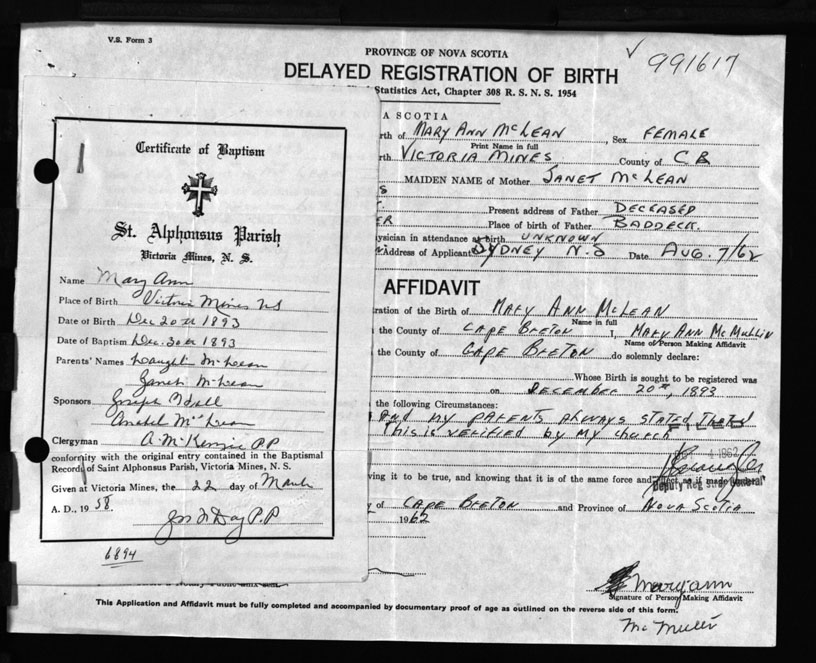 V.S. Form 3
PROVINCE OF NOVA SCOTIA
991617
DELAYED REGISTRATION OF BIRTH
Statistics Act, Chapter 308 R. S. N. S. 1954
A SCOTIA
rth of MARY ANN McLEAN Sex FEMALE
Print Name in full
rth VICTORIA MINES County of C B
MAIDEN NAME of Mother JANET McLEAN
S
Present address of Father DECEASED
ER Place of birth of Father BADDECK.
ysician in attendance at birth UNKNOWN
Address of Applicant SYDNEY N.S Date AUG. 7/62
AFFIDAVIT
ration of the Birth of MARY ANN McLEAN
Name in full
the County of CAPE BRETON I, MARY ANN McMULLIN
Name of Person Making Affidavit
the County of CAPE BRETON do solemnly declare:
Whose Birth is sought to be registered was
on DECEMBER 20th, 1893
the following Circumstances:
And my PARENTS Always stated
This is verified by my church
4 1962
ving it to be true, and knowing that it is of the same force and effect as if made under
Deputy Registrar General
y of CAPE BRETON and Province of NOVA SCOTIA
1962
Mary ann
Signature of Person Making Affidavit
This Application and Affidavit must be fully completed and accompanied by documentary proof of age as outlined on the reverse side of this form.
Certificate of Baptism
St. Alphonsus Parish
Victoria Mines, N. S.
Name Mary Ann
Place of Birth Victoria Mines NS
Date of Birth Dec 20th 1893
Date of Baptism Dec. 30th 1893
Parents' Names McLean
Janet McLean
Sponsors Joseph
McLean
Clergyman A. McKenzie PP
conformity with the original entry contained in the Baptismal
Records of Saint Alphonsus Parish, Victoria Mines, N. S.
Given at Victoria Mines, the 22 day of March
A. D., 1958.
P.P
6894